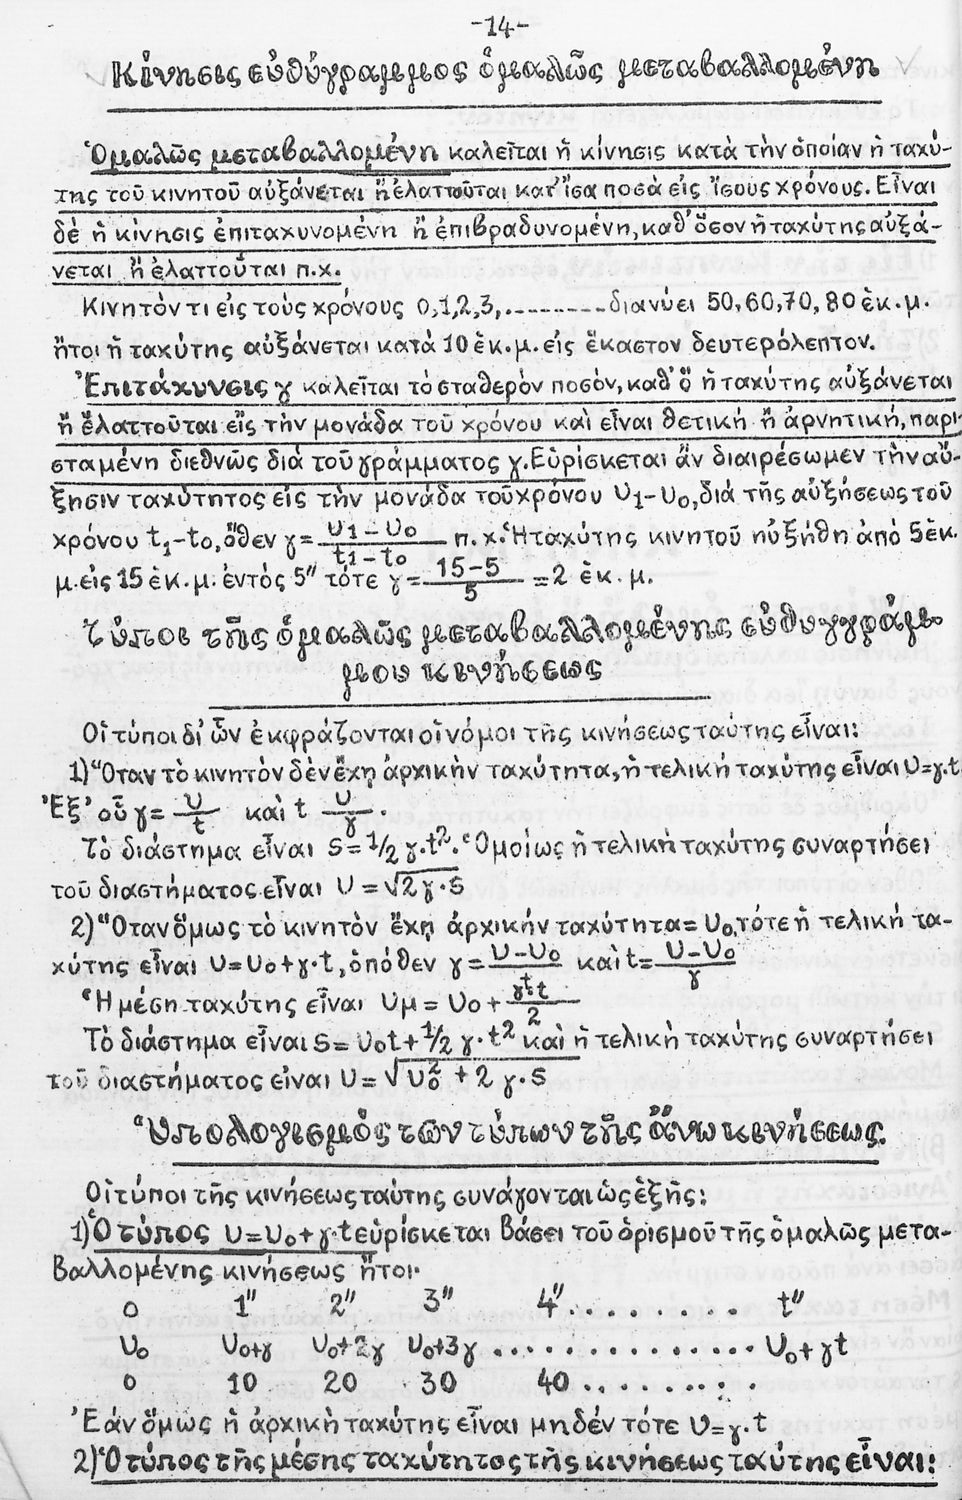 -14-
Κίνησις εὐθύγραμμος ὁμαλῶς μεταβαλλομένη
Ὁμαλῶς μεταβαλλομένη καλεῖται ἡ κίνησις κατὰ τὴν ὁποίαν ἡ ταχύ-
της τοῦ κινητοῦ αὐξάνεται ἢ ἐλαττοῦται κατ' ἴσα ποσὰ εἰς ἴσους χρόνους. Εἶναι
δὲ ἡ κίνησις ἐπιταχυνομένη ἢ ἐπιβραδυνομένη, καθ' ὅσον ἡ ταχύτης αὐξά-
νεται ἢ ἐλαττοῦται π.χ.
Κινητόν τι εἰς τοὺς χρόνους 0,1,2,3,.........διανύει 50,60,70,80 ἑκ.μ.
ἤτοι ἡ ταχύτης αὐξάνεται κατὰ 10 ἑκ.μ. εἰς ἕκαστον δευτερόλεπτον.
Ἐπιτάχυνσις γ καλεῖται τὸ σταθερὸν ποσόν, καθ' ὃ ἡ ταχύτης αὐξάνεται
ἢ ἐλαττοῦται εἰς τὴν μονάδα τοῦ χρόνου καὶ εἶναι θετικὴ ἢ ἀρνητική, παρι-
σταμένη διεθνῶς διὰ τοῦ γράμματος γ. Εὑρίσκεται ἂν διαιρέσωμεν τὴν αὔ-
ξησιν ταχύτητος εἰς τὴν μονάδα τοῦ χρόνου υ₁-υ₀, διὰ τῆς αὐξήσεως τοῦ
χρόνου t₁-t₀, ὅθεν γ= (υ₁-υ₀)/(t₁-t₀) π.χ. Ἡ ταχύτης κινητοῦ ηὐξήθη ἀπὸ 5 ἑκ.
μ. εἰς 15 ἑκ.μ. ἐντὸς 5" τότε γ= (15-5)/5 =2 ἑκ.μ.
Τύποι τῆς ὁμαλῶς μεταβαλλομένης εὐθυγράμ-
μου κινήσεως
Οἱ τύποι δι' ὧν ἐκφράζονται οἱ νόμοι τῆς κινήσεως ταύτης εἶναι:
1) Ὅταν τὸ κινητὸν δὲν ἔχῃ ἀρχικὴν ταχύτητα, ἡ τελικὴ ταχύτης εἶναι υ=γ.t
Ἐξ' οὗ γ= υ/t καὶ t υ/γ.
Τὸ διάστημα εἶναι S=1/2 γ.t². Ὁμοίως ἡ τελικὴ ταχύτης συναρτήσει
τοῦ διαστήματος εἶναι υ=√2γ.S
2) Ὅταν ὅμως τὸ κινητὸν ἔχῃ ἀρχικὴν ταχύτητα=υ₀, τότε ἡ τελικὴ τα-
χύτης εἶναι υ=υ₀+γ.t, ὁπόθεν γ= (υ-υ₀)/t καὶ t= (υ-υ₀)/γ
Ἡ μέση ταχύτης εἶναι υμ = υ₀+ γt/2
Τὸ διάστημα εἶναι S= υ₀t+1/2 γ.t² καὶ ἡ τελικὴ ταχύτης συναρτήσει
τοῦ διαστήματος εἶναι υ=√υ₀² + 2γ.S
Ὑπολογισμὸς τῶν τύπων τῆς ἄνω κινήσεως.
Οἱ τύποι τῆς κινήσεως ταύτης συνάγονται ὡς ἑξῆς:
1) Ὁ τύπος υ=υ₀+γ.t εὑρίσκεται βάσει τοῦ ὁρισμοῦ τῆς ὁμαλῶς μετα-
βαλλομένης κινήσεως ἤτοι.
0 1" 2" 3" 4"......... t"
υ₀ υ₀+γ υ₀+2γ υ₀+3γ .............. υ₀+γt
0 10 20 30 40..........
Ἐάν ὅμως ἡ ἀρχικὴ ταχύτης εἶναι μηδέν τότε υ=γ.t
2) Ὁ τύπος τῆς μέσης ταχύτητος τῆς κινήσεως ταύτης εἶναι: